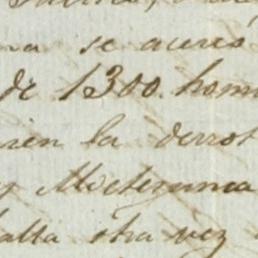 se acercó
de 1300. hom
en la derrot
y Moctezuma
alta otra vez